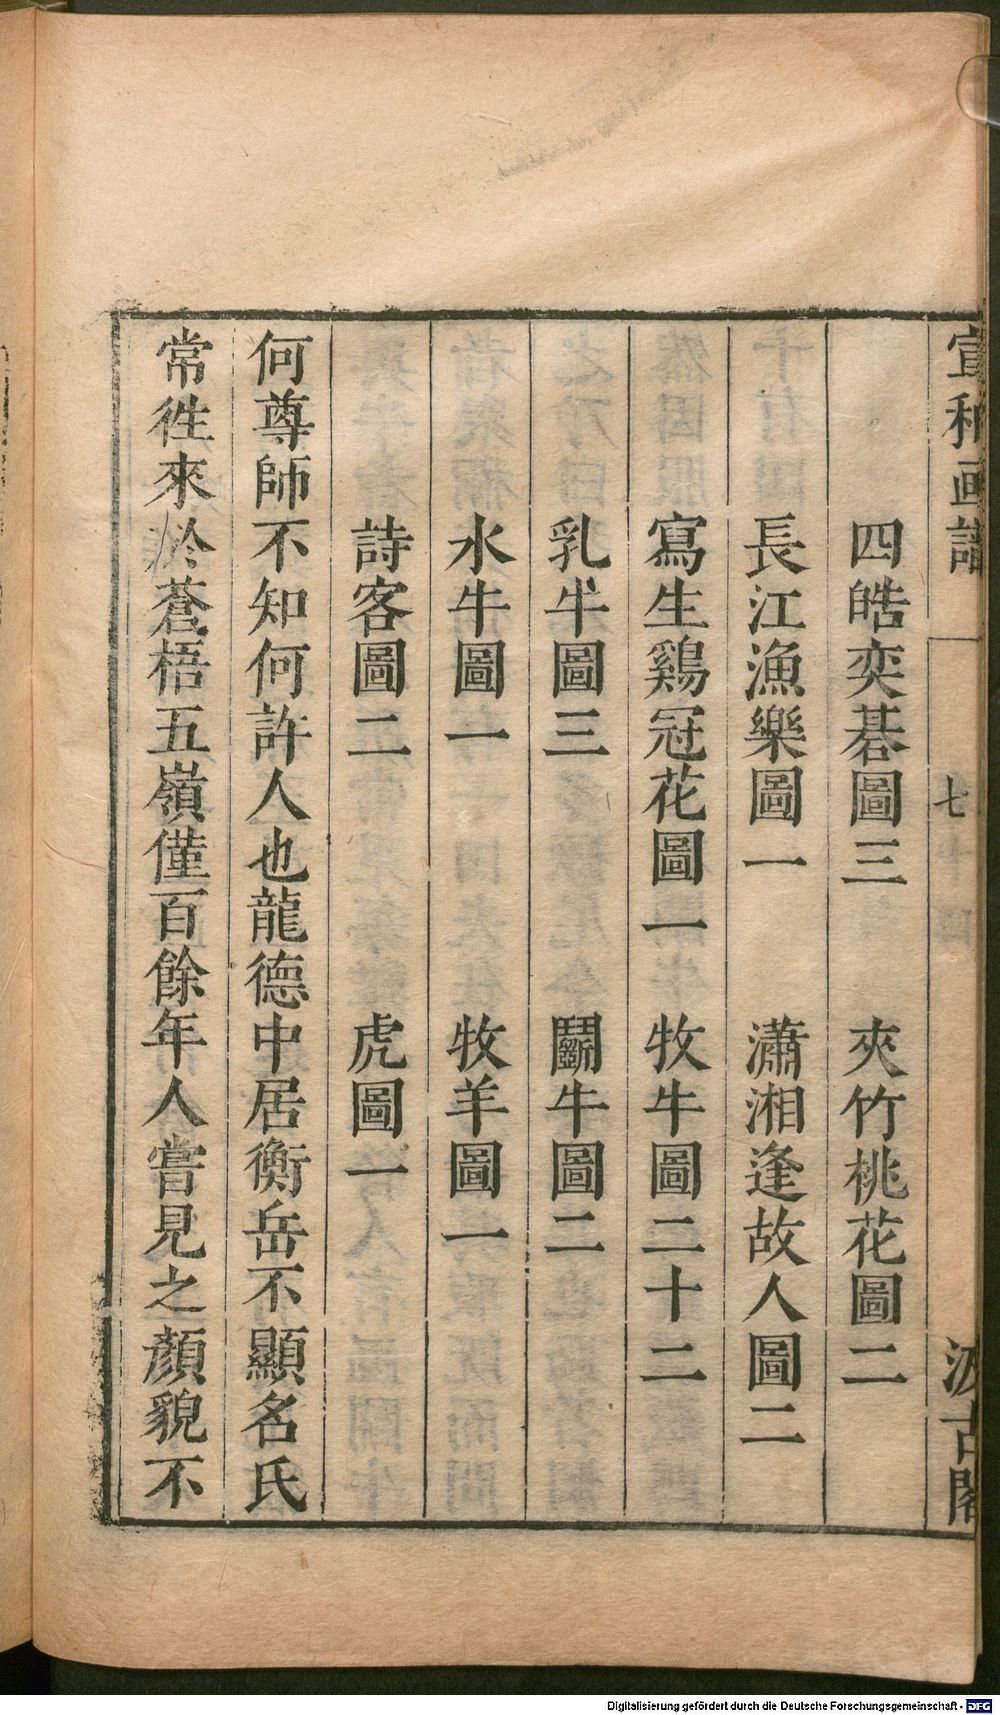 宣和画譜 七 十四 汲古閣
四皓奕碁圖三 夾竹桃花圖二
長江漁樂圖一 瀟湘逢故人圖二
寫生鷄冠花圖一 牧牛圖二十二
乳牛圖三 鬭牛圖二
水牛圖一 牧羊圖一
詩客圖二 虎圖一
何尊師不知何許人也龍德中居衡岳不顯名氏
常徃來於蒼梧五嶺僅百餘年人嘗見之顏貌不
Digitalisierung gefördert durch die Deutsche Forschungsgemeinschaft - DFG